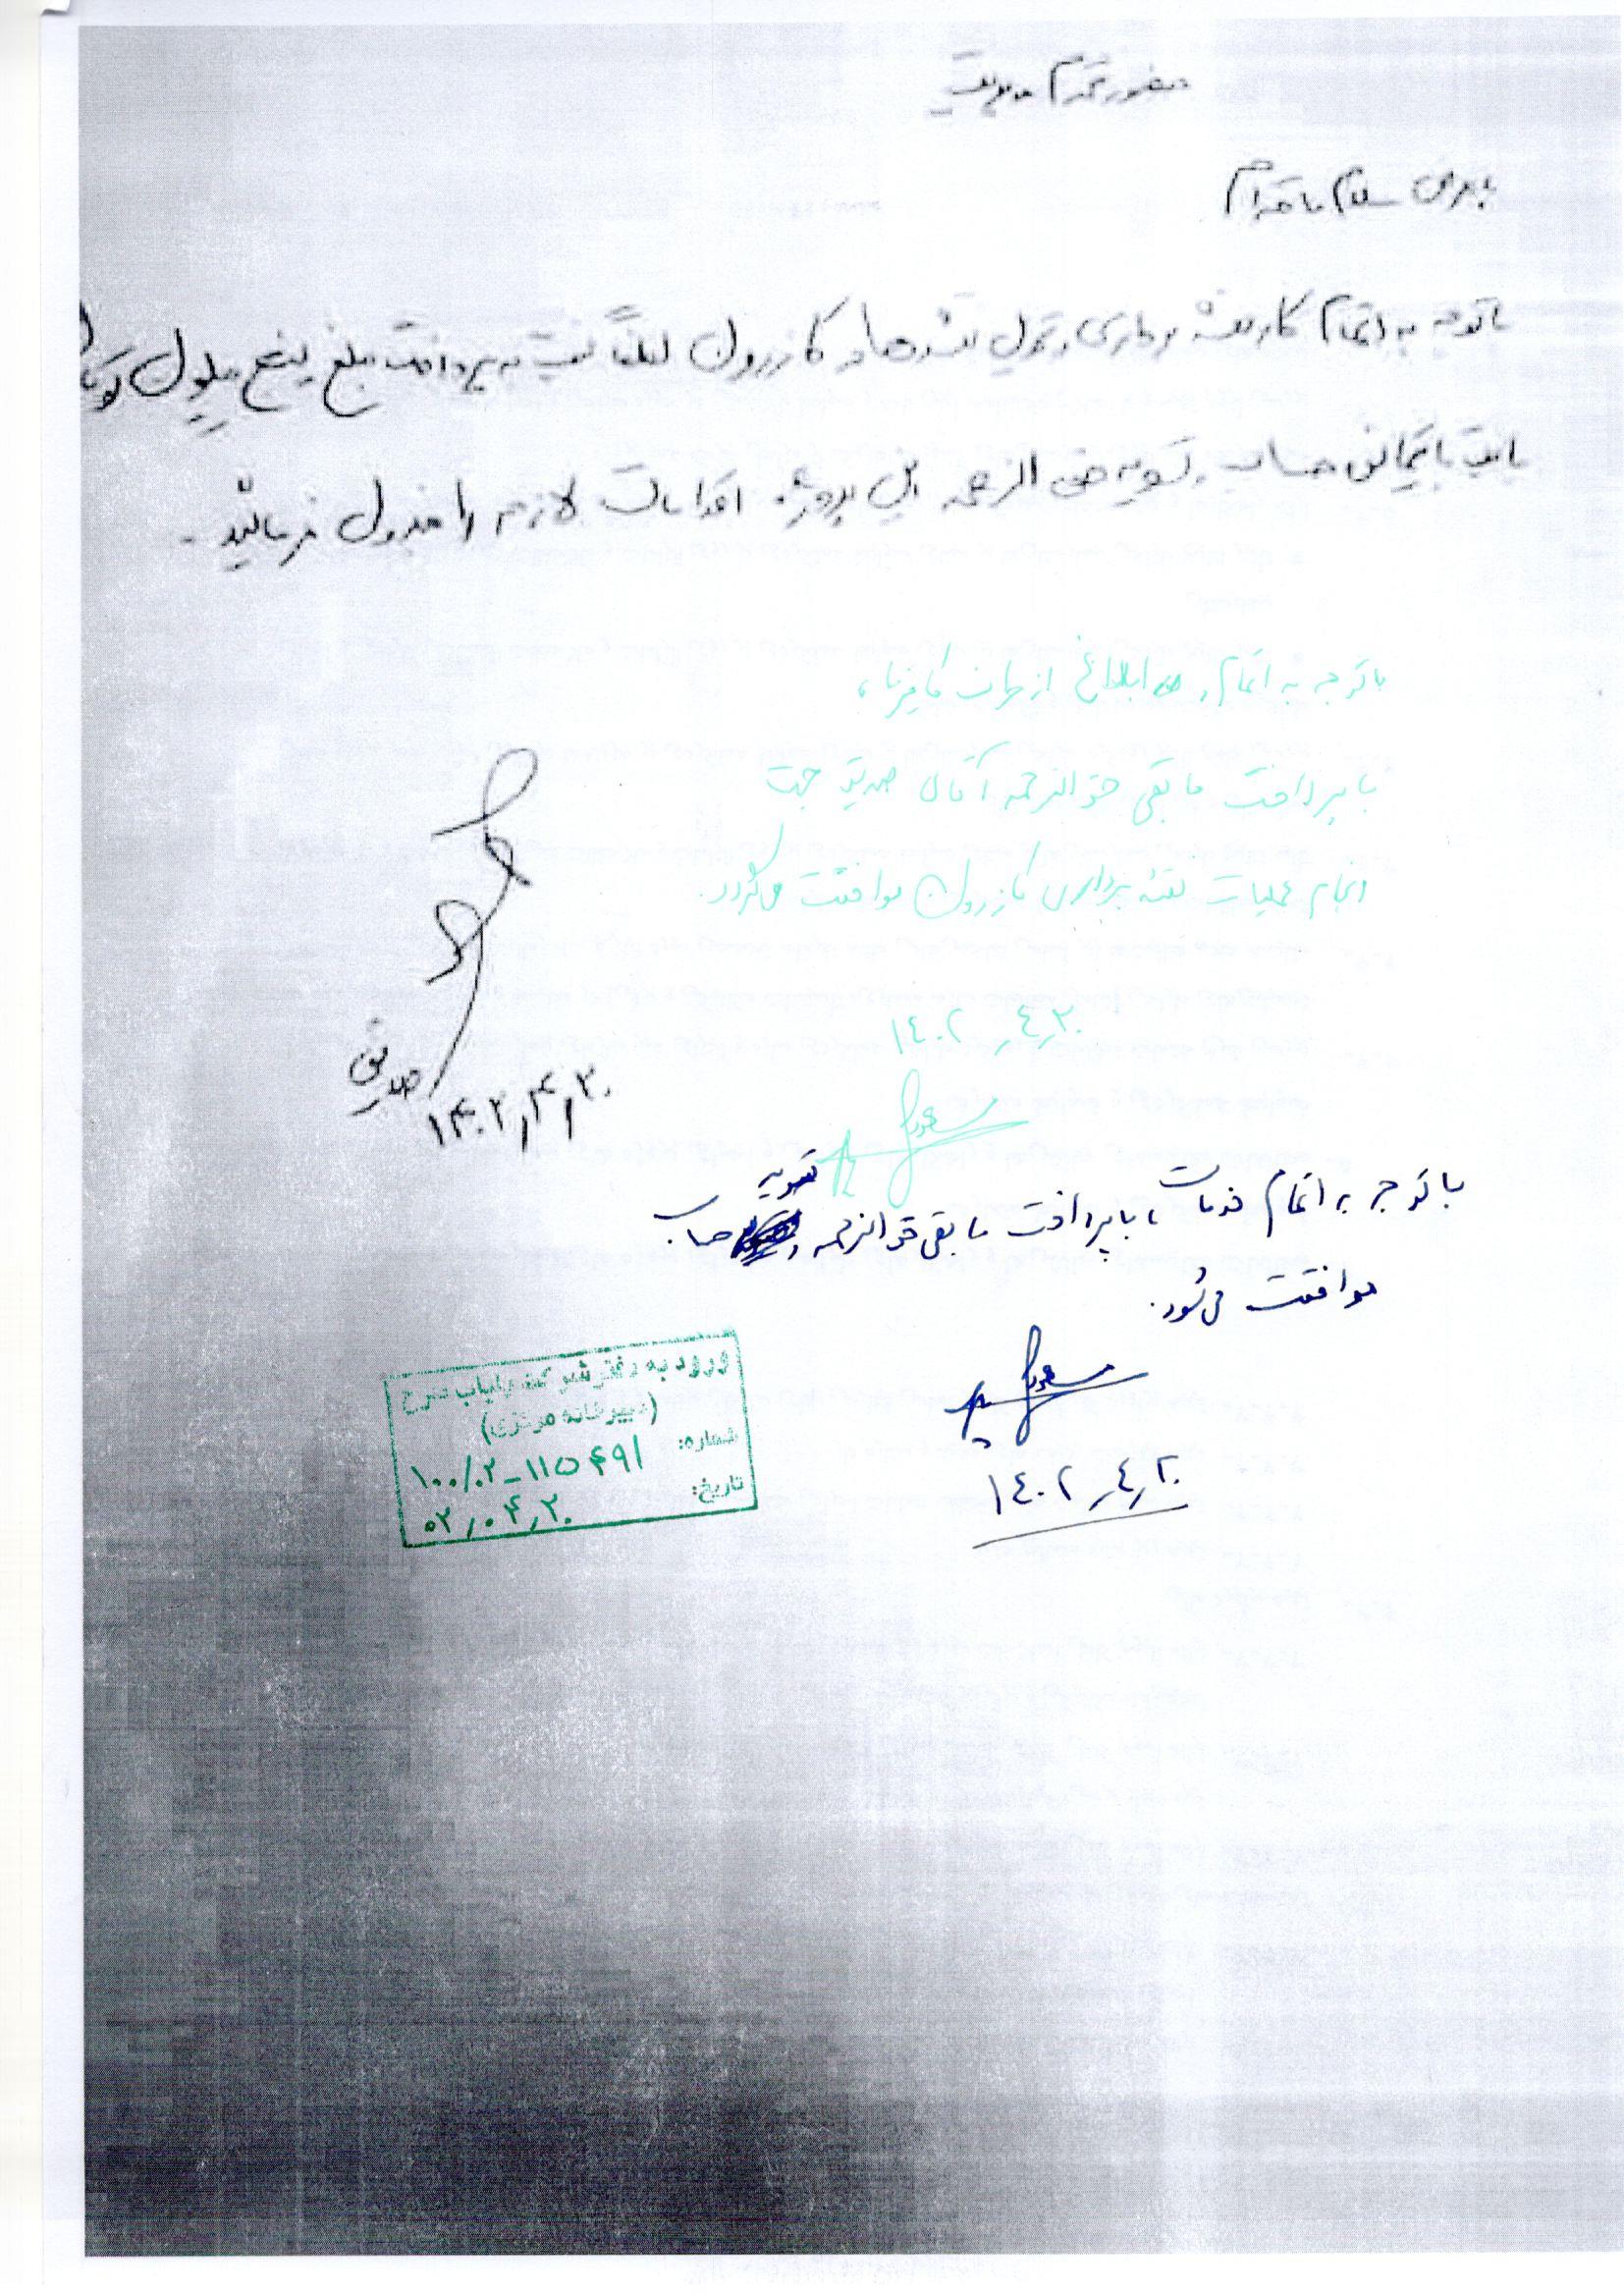 حضور محترم مدیریت
با عرض سلام و احترام
با توجه به اتمام کار نقشه برداری و تحویل نقشه های کازرون لطفاً نسبت به پرداخت مبلغ پنج میلیون تومان
بابت باقیمانده حساب و تسویه حق الزحمه این پروژه اقدامات لازم را مبذول فرمائید.
با توجه به اتمام و ابلاغ از طرف کارفرما،
با پرداخت مابقی حق الزحمه آقای صدیق جهت
انجام عملیات نقشه برداری کازرون موافقت می گردد.
۱۴۰۲٫۴٫۲۰
صدیق
۱۴۰۲٫۴٫۲۰
با توجه به اتمام خدمات، با پرداخت مابقی حق الزحمه و تسویه حساب
موافقت می شود.
۱۴۰۲٫۴٫۲۰
ورود به دفتر شرکت
(دبیرخانه مرکزی)
شماره: ۱۰۰/۰۲-۱۱۵۴۹۱
تاریخ: ۰۲٫۰۴٫۲۰